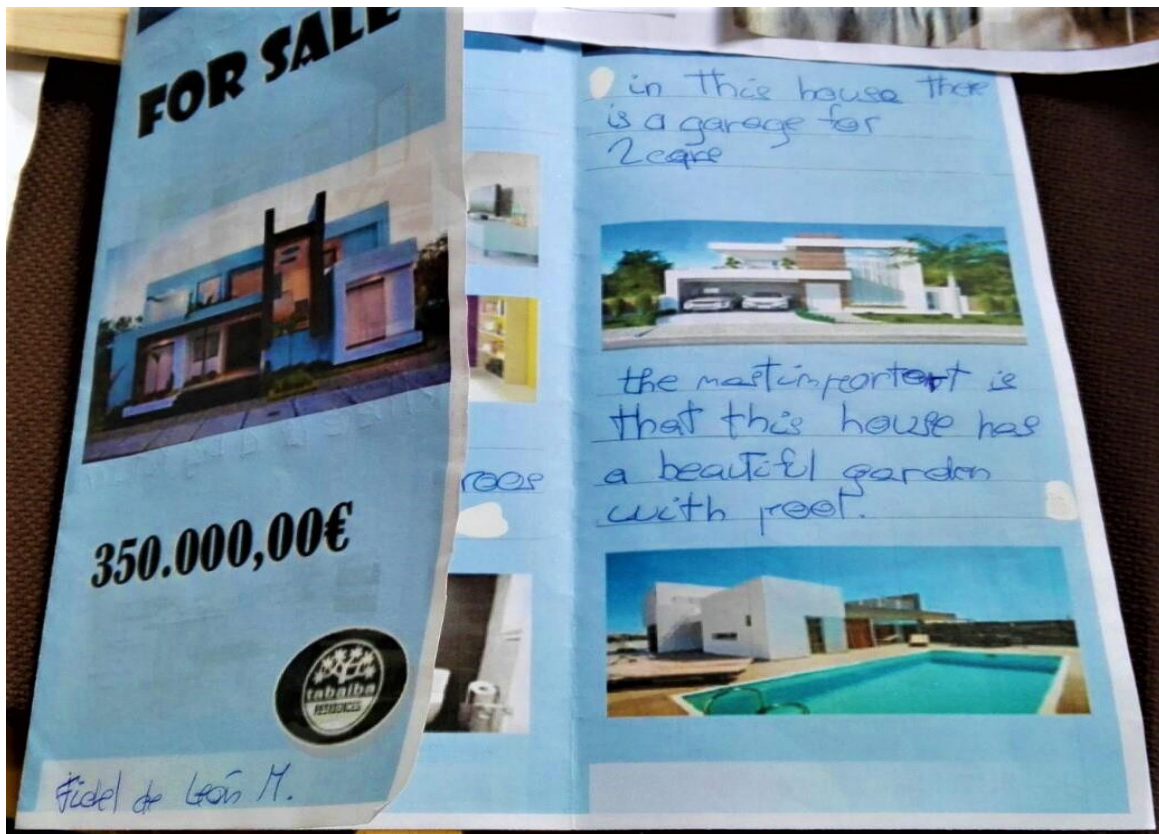 FOR SALE
350.000,00€
tabaiba
RESIDENCES
Fidel de León M.
in this house there
is a garage for
2 cars
the most important is
that this house has
a beautiful garden
with pool.